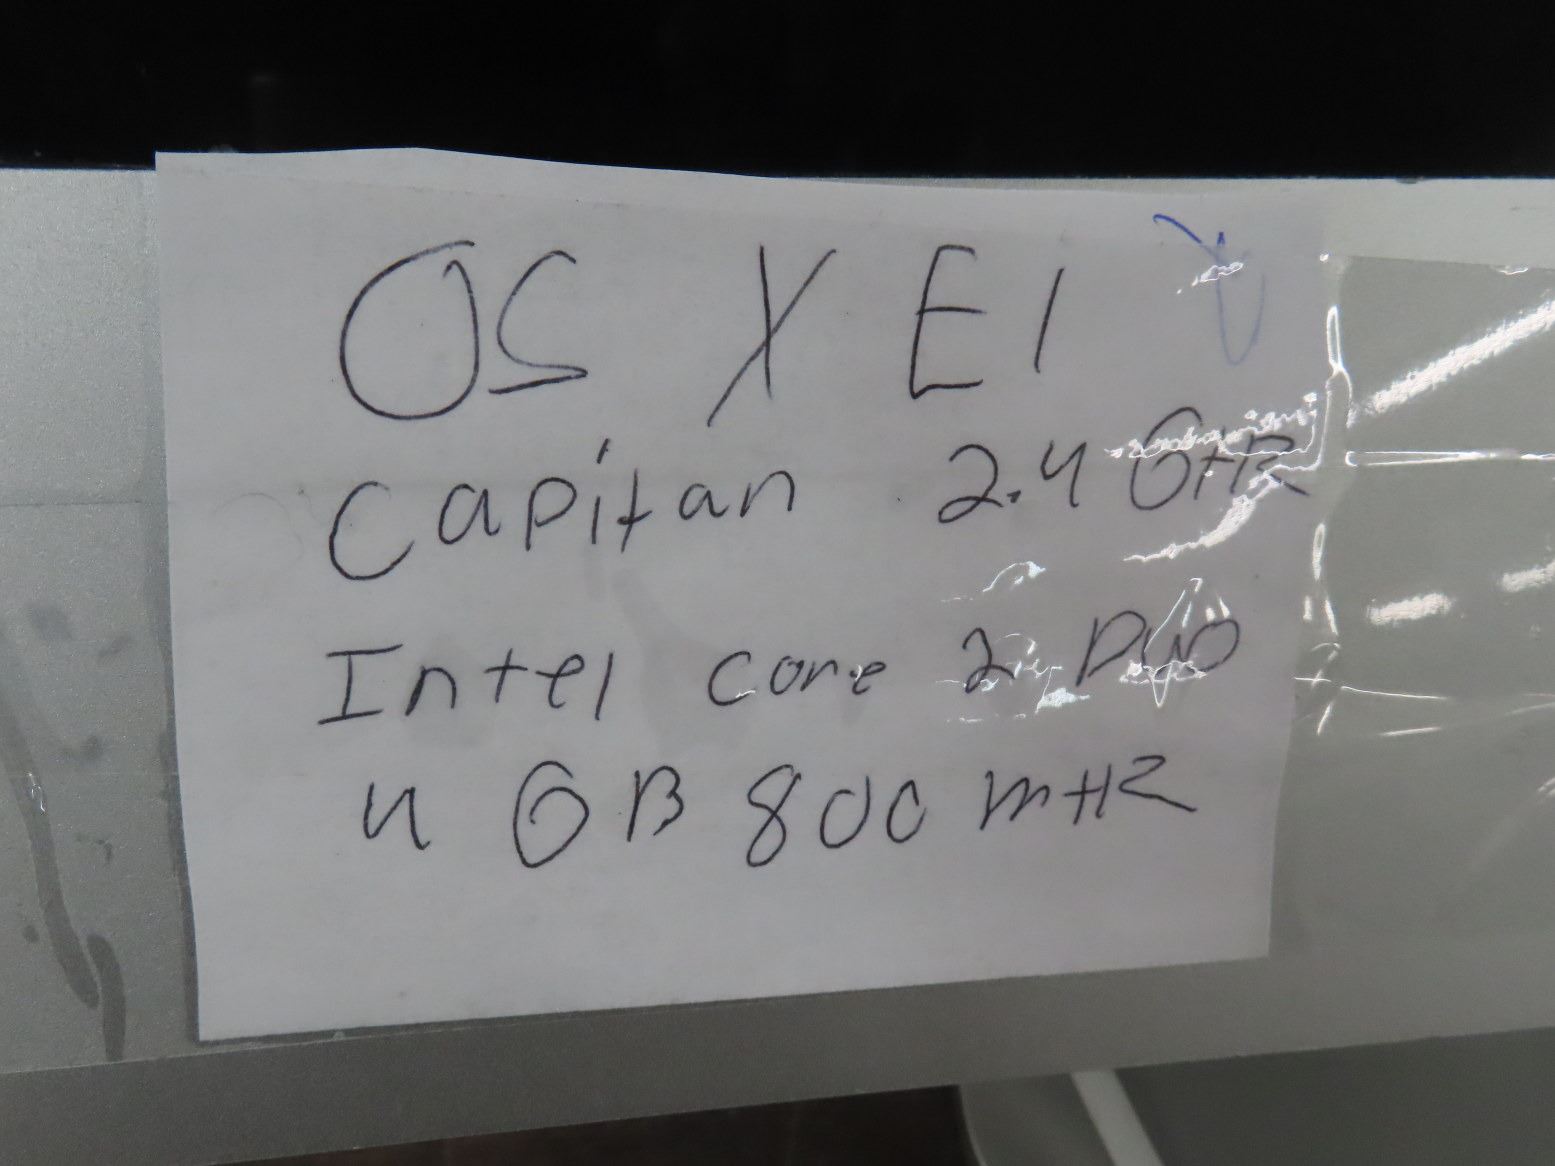 OS X El
Capitan 2.4 GHz
Intel core 2 DUO
4 GB 800 mHz